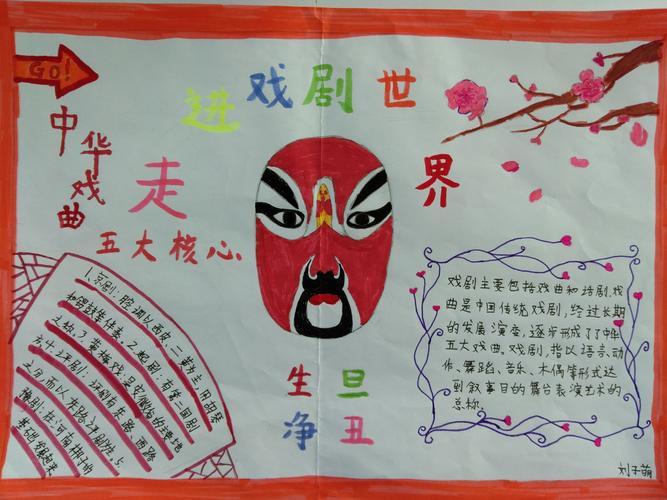 GO!
走进戏剧世界
中华戏曲
五大核心
1、京剧：腔调以西皮、二黄为主，用胡琴
和锣鼓等伴奏。2、越剧：有第二国剧
之称。3、黄梅戏是安徽省的主要地
方
4、评剧：评剧有东路、西路
之分，而以东路评剧
5、
豫剧：在河南梆子的
基础
生旦
净丑
戏剧主要包括戏曲和话剧，戏
曲是中国传统戏剧，经过长期
的发展演变，逐步形成了中华
五大戏曲。戏剧，指以语言、动
作、舞蹈、音乐、木偶等形式达
到叙事目的舞台表演艺术的
总称。
刘子萌